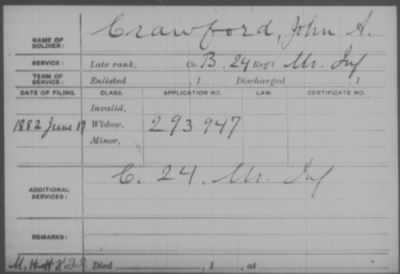 NAME OF SOLDIER: Crawford, John A.
SERVICE: Late rank, Co. B. 24 Reg't Mo. Inf
TERM OF SERVICE: Enlisted , 1 Discharged , 1
DATE OF FILING. CLASS. APPLICATION NO. LAW. CERTIFICATE NO.
Invalid,
1882 June 19 Widow, 293947
Minor,
ADDITIONAL SERVICES: C. 24. Mo. Inf
REMARKS:
Died , 1 , at